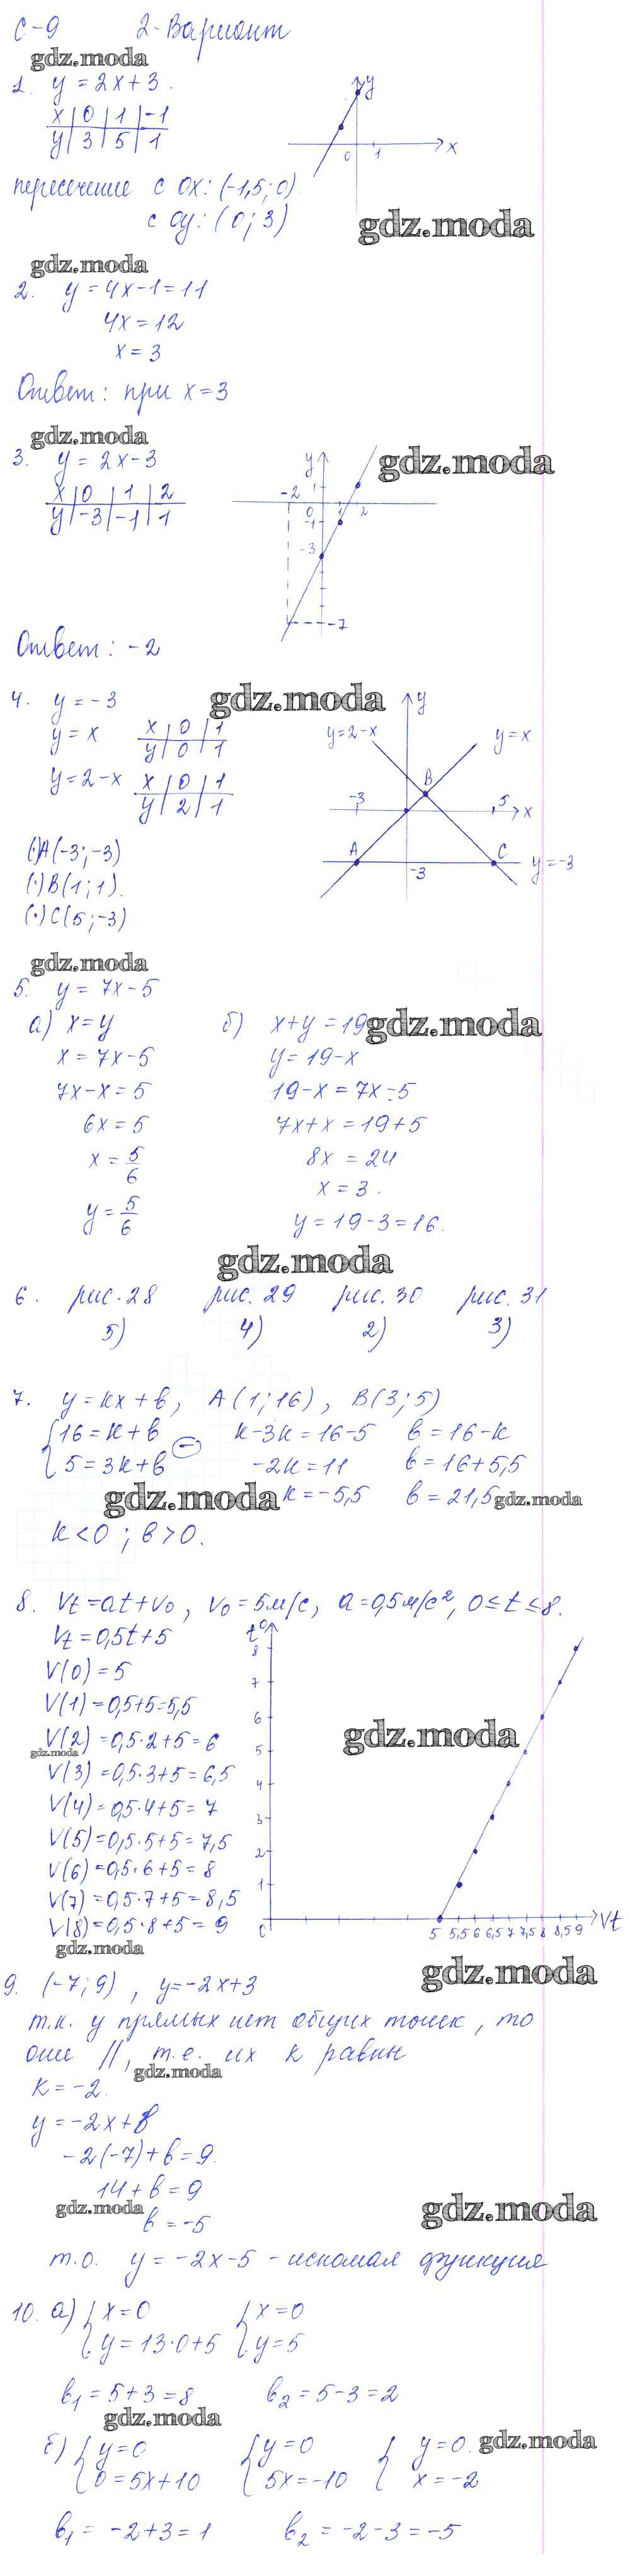 С-9 2-Вариант
gdz.moda
1. y = 2x+3.
x | 0 | 1 | -1
y | 3 | 5 | 1
y
0 1 x
пересечение с OX: (-1,5; 0)
с OY: (0; 3)
gdz.moda
gdz.moda
2. y = 4x-1 = 11
4x = 12
x = 3
Ответ: при x=3
gdz.moda
gdz.moda
3. y = 2x-3
x | 0 | 1 | 2
y | -3 | -1 | 1
y
1
-2
0 1 2
-1
-3
-7
Ответ: -2
gdz.moda
4. y = -3
y = x
x | 0 | 1
y | 0 | 1
y=2-x
x | 0 | 1
y | 2 | 1
y
y=2-x y=x
B
-3 5 x
A C
-3 y=-3
(·)A(-3;-3)
(·)B(1;1).
(·)C(5;-3)
gdz.moda
5. y = 7x-5
а) x=y
x = 7x-5
7x-x = 5
6x = 5
x = 5/6
y = 5/6
б) x+y = 19
gdz.moda
y = 19-x
19-x = 7x-5
7x+x = 19+5
8x = 24
x = 3.
y = 19-3 = 16.
gdz.moda
6. рис. 28 рис. 29 рис. 30 рис. 31
5) 4) 2) 3)
7. y = kx+b, A(1;16), B(3;5)
{16 = k+b (-) k-3k = 16-5 b = 16-k
{5 = 3k+b -2k = 11 b = 16+5,5
gdz.moda k = -5,5 b = 21,5 gdz.moda
k<0; b>0.
8. Vt = at+V₀, V₀ = 5м/с, a = 0,5м/с², 0≤t≤8.
Vt = 0,5t+5
V(0) = 5
V(1) = 0,5+5 = 5,5
V(2) = 0,5·2+5 = 6
gdz.moda
V(3) = 0,5·3+5 = 6,5
V(4) = 0,5·4+5 = 7
V(5) = 0,5·5+5 = 7,5
V(6) = 0,5·6+5 = 8
V(7) = 0,5·7+5 = 8,5
V(8) = 0,5·8+5 = 9
gdz.moda
t
8
7
6
gdz.moda
5
4
3
2
1
5 5,5 6 6,5 7 7,5 8 8,5 9 Vt
gdz.moda
9. (-7; 9), y = -2x+3
т.к. у прямых нет общих точек, то
они //, т.е. их k равны
gdz.moda
k = -2.
y = -2x+b
-2(-7)+b = 9.
14+b = 9
gdz.moda
gdz.moda
b = -5
т.о. y = -2x-5 - искомая функция
10. а) {x=0 {x=0
{y = 13·0+5 {y=5
b₁ = 5+3 = 8 b₂ = 5-3 = 2
gdz.moda
б) {y=0 {y=0 {y=0. gdz.moda
{0 = 5x+10 {5x=-10 {x = -2
b₁ = -2+3 = 1 b₂ = -2-3 = -5